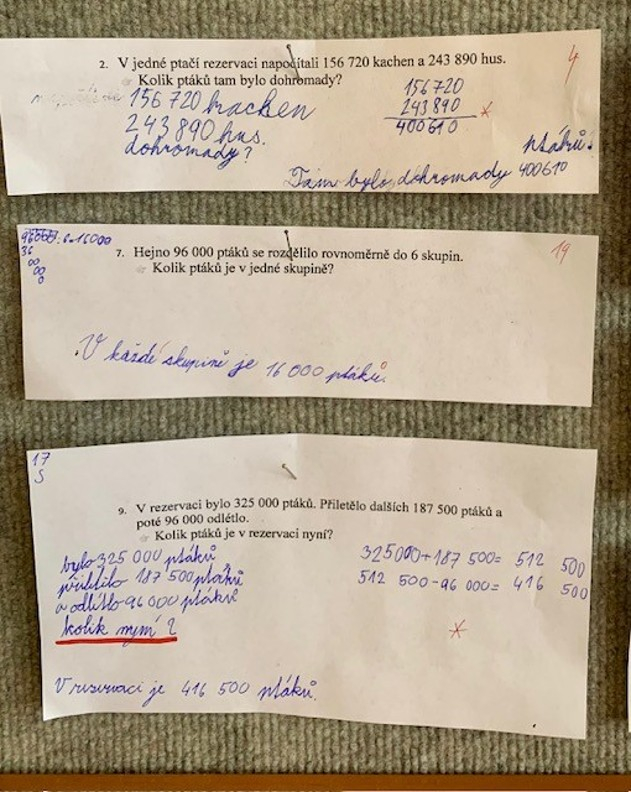 2. V jedné ptačí rezervaci napočítali 156 720 kachen a 243 890 hus.
Kolik ptáků tam bylo dohromady?
4
156 720 kachen
243 890 hus.
dohromady?
156720
243890
400610
ptáků.
Tam bylo dohromady 400610
96000:6=16000
36
00
00
0
7. Hejno 96 000 ptáků se rozdělilo rovnoměrně do 6 skupin.
Kolik ptáků je v jedné skupině?
19
V každé skupině je 16 000 ptáků.
17
S
9. V rezervaci bylo 325 000 ptáků. Přiletělo dalších 187 500 ptáků a
poté 96 000 odlétlo.
Kolik ptáků je v rezervaci nyní?
bylo 325 000 ptáků
přilétlo 187 500 ptáků
a odlétlo 96 000 ptáků
kolik nyní?
325000+187 500= 512 500
512 500-96 000= 416 500
V rezervaci je 416 500 ptáků.